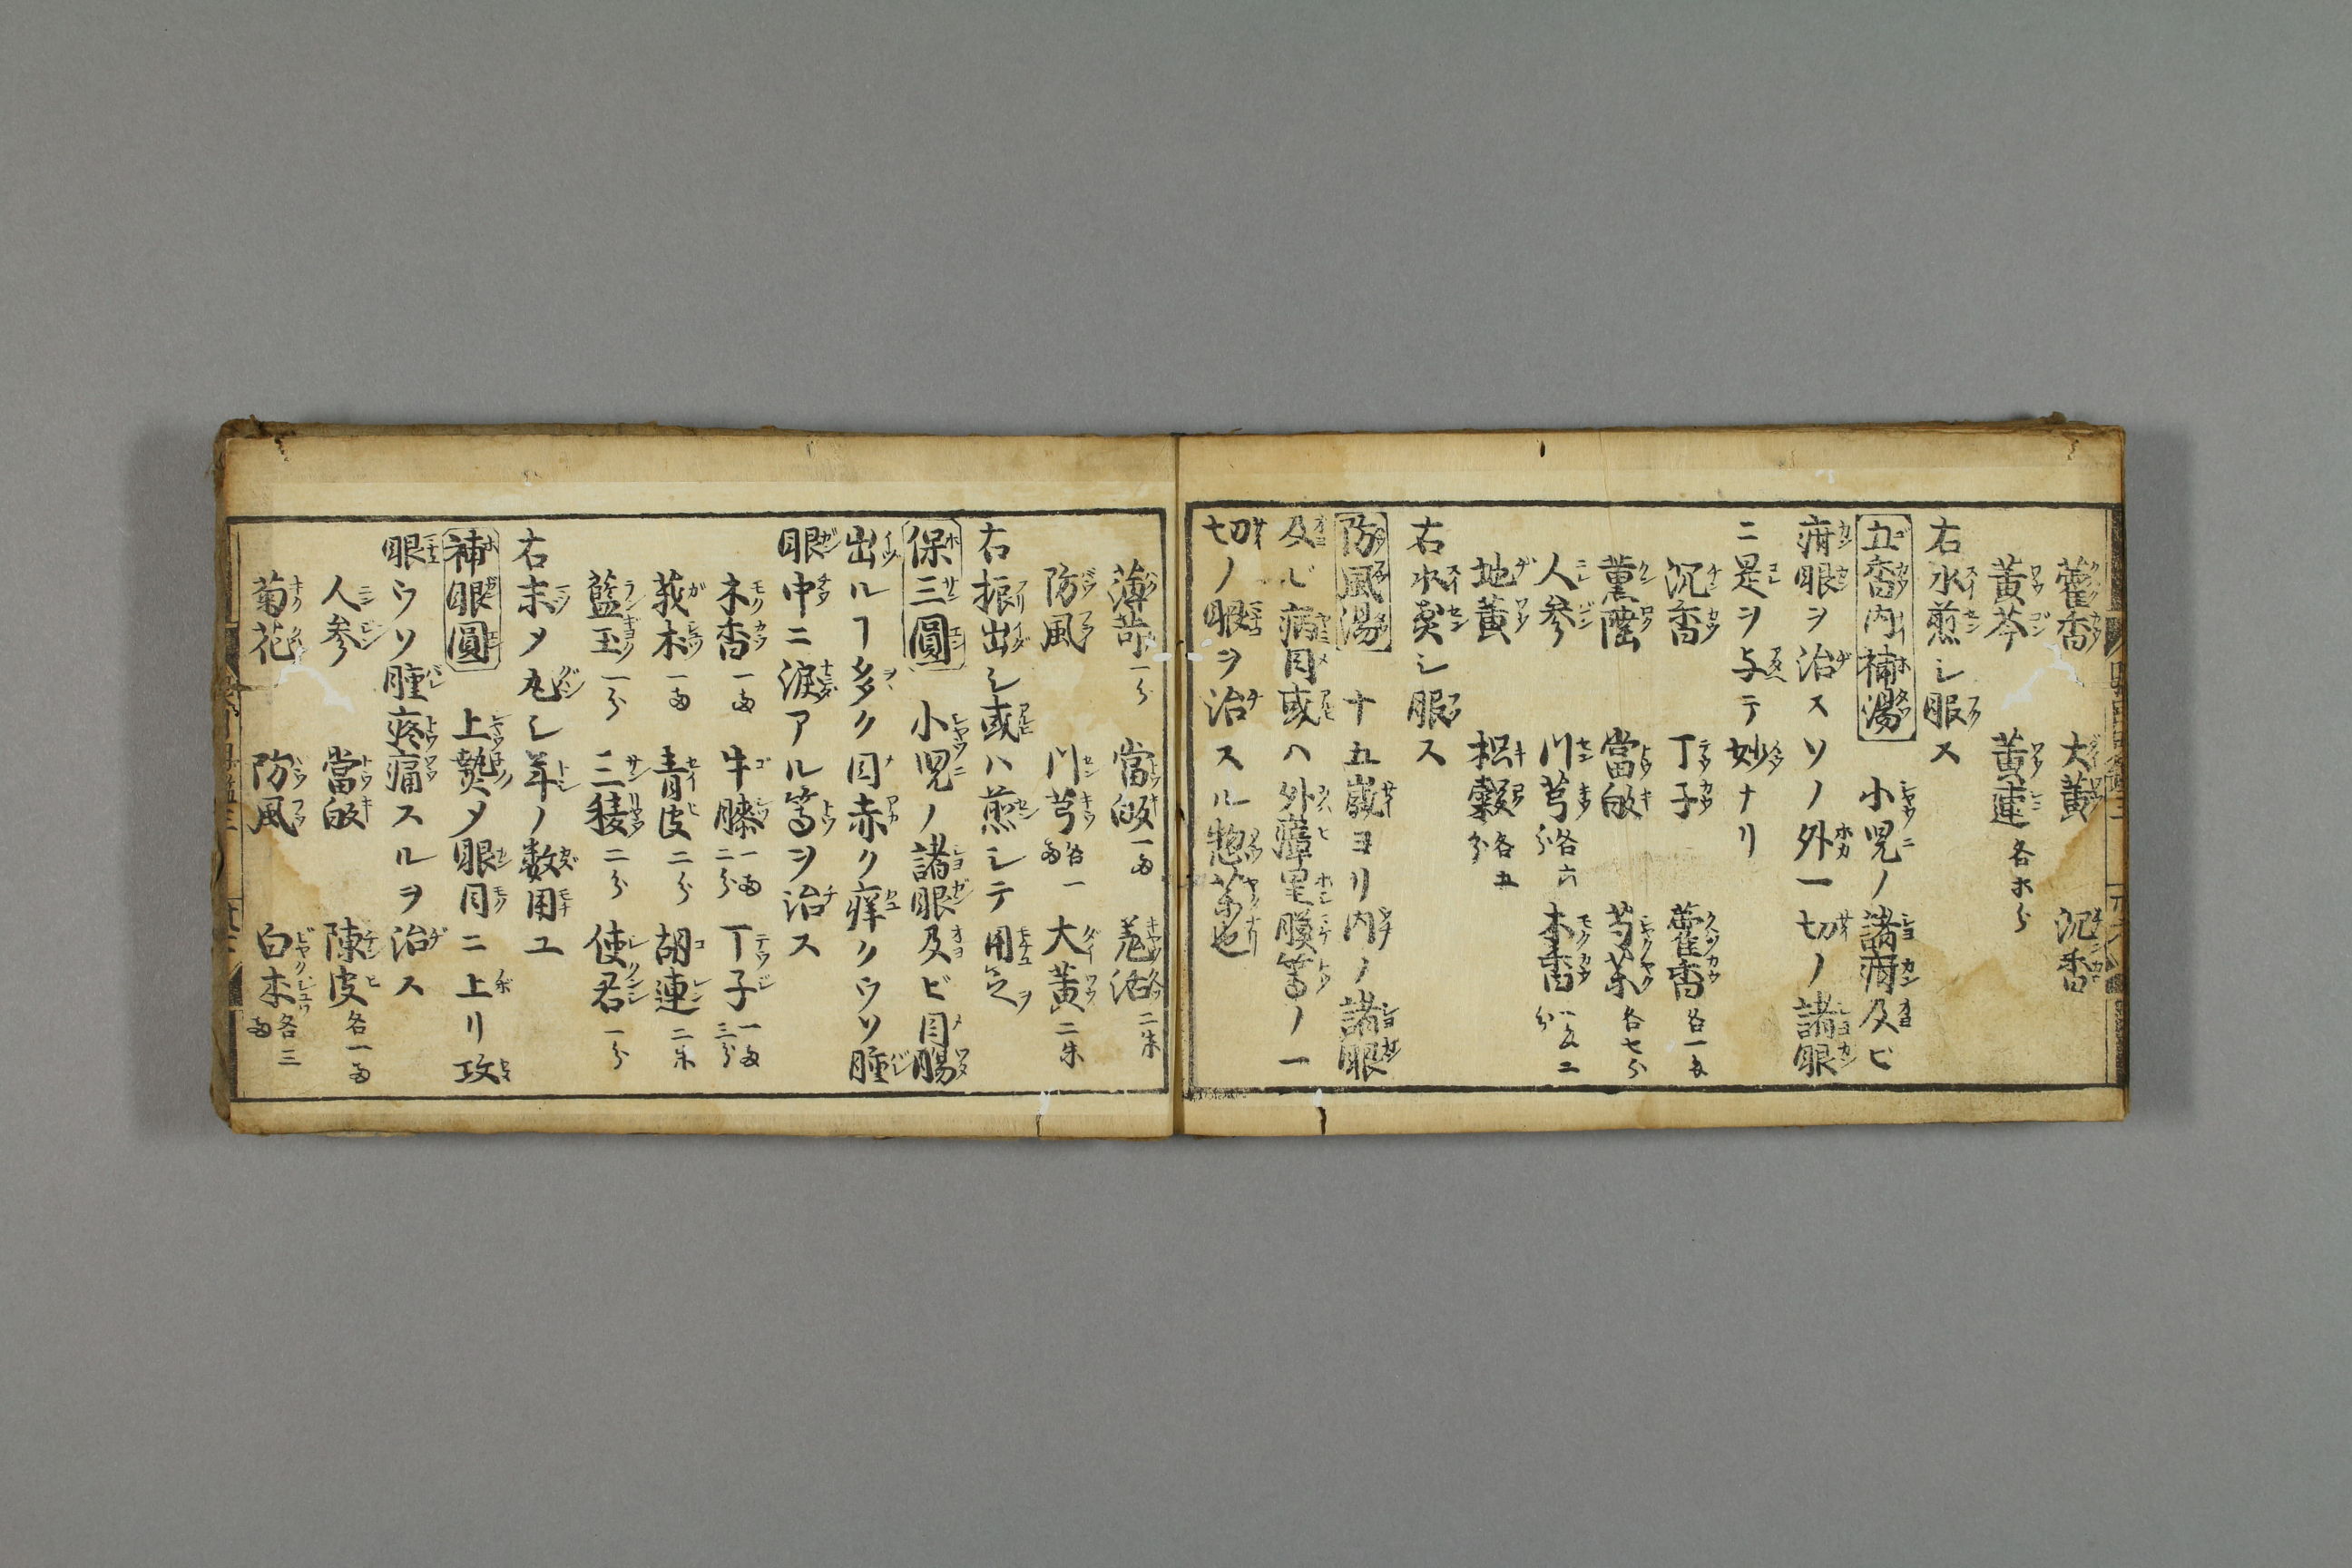 藿香 大黄 沉香
黄芩 黄連 各ホ分
右水煎シ服ス
五香内補湯 小児ノ諸疳及ビ
疳眼ヲ治スソノ外一切ノ諸眼
ニ是ヲ与テ妙ナリ
沉香 丁子 藿香 各一匁
薫陸 當皈 芍薬 各七分
人参 川芎 各六分 木香 一匁二分
地黄 枳殻 各五分
右水煎シ服ス
防風湯 十五歳ヨリ内ノ諸眼
及ビ病目或ハ外障里膜等ノ一
切ノ眼ヲ治スル惣薬也
薄苛 一分 當皈 一両 羌活 二朱
防風 川芎 各一両 大黄 二朱
右振出シ或ハ煎シテ用乞
保三圓 小児ノ諸眼及ビ目腸
出ルヿ多ク目赤ク痒クウソ腫
眼中ニ涙アル等ヲ治ス
木香 一両 牛膝 一両二分 丁子 一両三分
莪朮 一両 青皮 二分 胡連 二朱
藍玉 一分 三稜 二分 使君 一分
右末メ丸シ年ノ数用ユ
補眼圓 上熱メ眼目ニ上リ攻
眼ウソ腫疼痛スルヲ治ス
人参 當皈 陳皮 各一両
菊花 防風 白朮 各三両